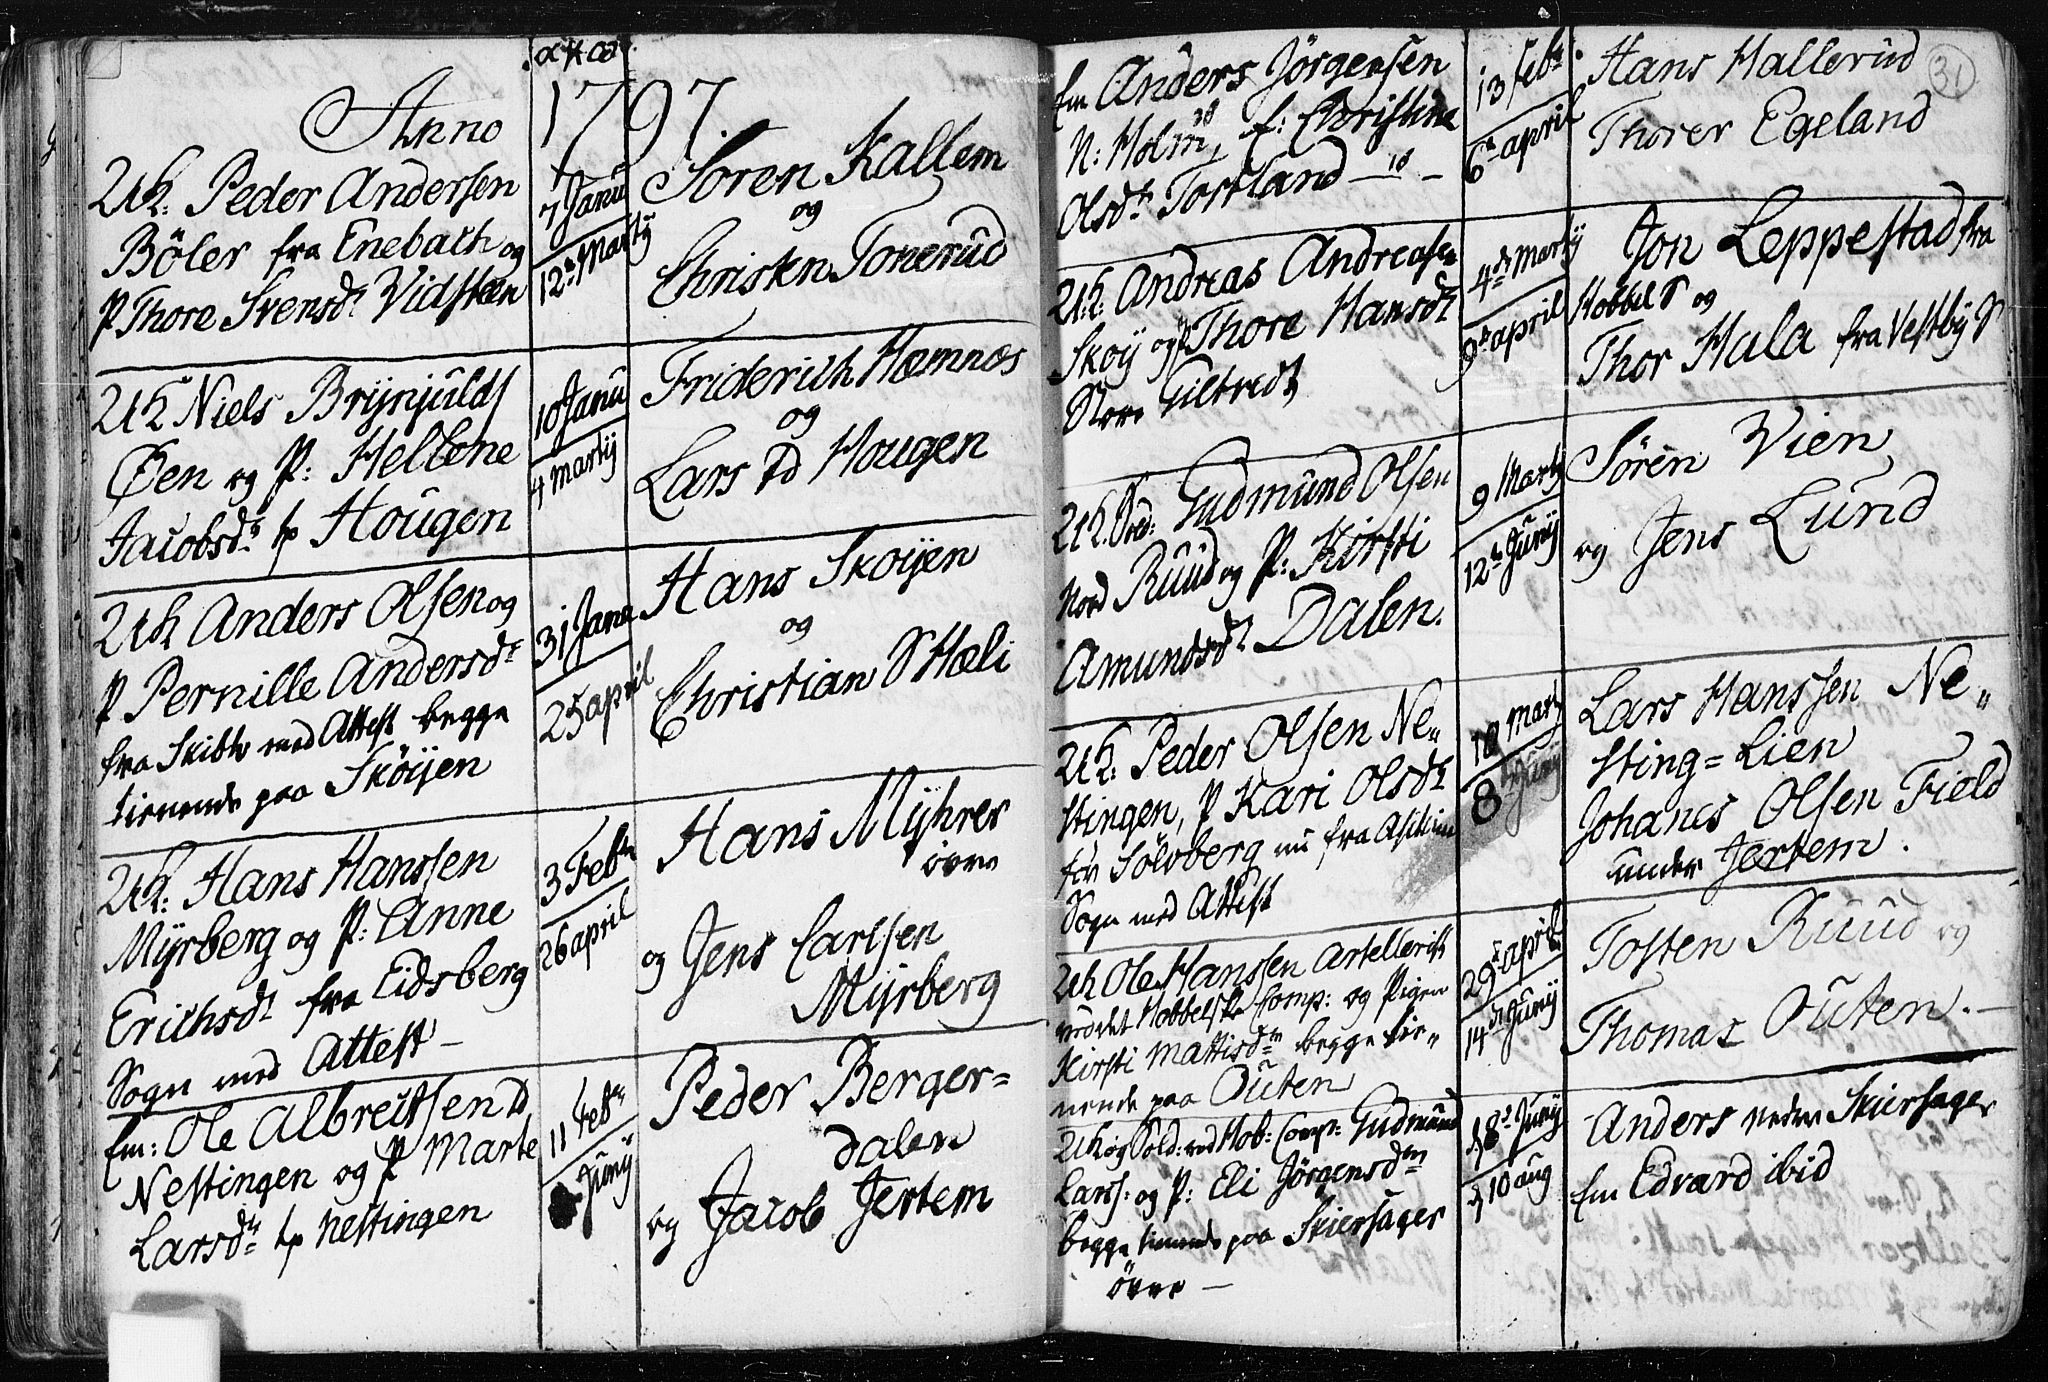 Anno 1797.
Uk: Peder Andersen
Böler fra Enebach og
P Thore Svensdr Vidsteen
7 Janu
12te Martij
Søren Kallem
og
Christen Tonerud
Uk Niels Brynjulds
Øen og P: Hellene
Jacobsdr Hougen
10 Janu
4 Martij
Friderich Hæmnæs
og
Lars Hougen
Uk Anders Olsen og
P Pernille Andersdr
fra Skibtv med Attest begge
tienende paa Skøyen
31 Janu
25 april
Hans Skoijen
og
Christian S Hæli
Uk: Hans Hanssen
Myrberg og P: Anne
Erichsdr fra Eidsberg
Sogn med Attest —
3 Febr
26 april
Hans Myhrer
övre
og Jens Carlsen
Myrberg
Em: Ole Albreitsen
Nestingen og P Marte
Larsdr Nestingen
11 Febr
Junij
Peder Berger=
dalen
og Jacob Jertem
31
Em Anders Jörgensen
N: Holm, E: Christine
Olsdr Tostland —
13 Febr.
6te april
Hans Hallerud
Thorer Egeland
Uk: Andreas Andreasen
Skoy og P Thore Hansdr
Store Giltvedt
4de Martij
9de april
Jon Leppestad fra
Hobbel S og
Thor Hala fra Vestby S
Uk Gudmund Olsen
Nord Ruud og P: Kirsti
Amundsdr Dalen.
9 Martij
12te Junij
Sören Vien
og Jens Lund
Uk: Peder Olsen Ne„
stingen, P Kari Olsdr
Sölvberg nu fra Askim
Sogn med Attest
18 Martij
8de Junij
Lars Hanssen Ne„
sting=Lien
Johanes Olsen Field
under Jertem.
Uk Ole Hanssen Artellerist
ved det Hobbelske Comp: og Pigen
Kirsti Mattisdr begge tie„
nende paa Outen
29de april
14de Junij
Tosten Ruud og
Thomas Outen. —
Uk og Sold: ved Hob: Comp: Gudmund
Larss: og P: Eli Jörgensdr
begge tienende paa Skiersager
övre —
18de Junij
10 aug
Anders nedre Skiersager
Em Edvard ibid